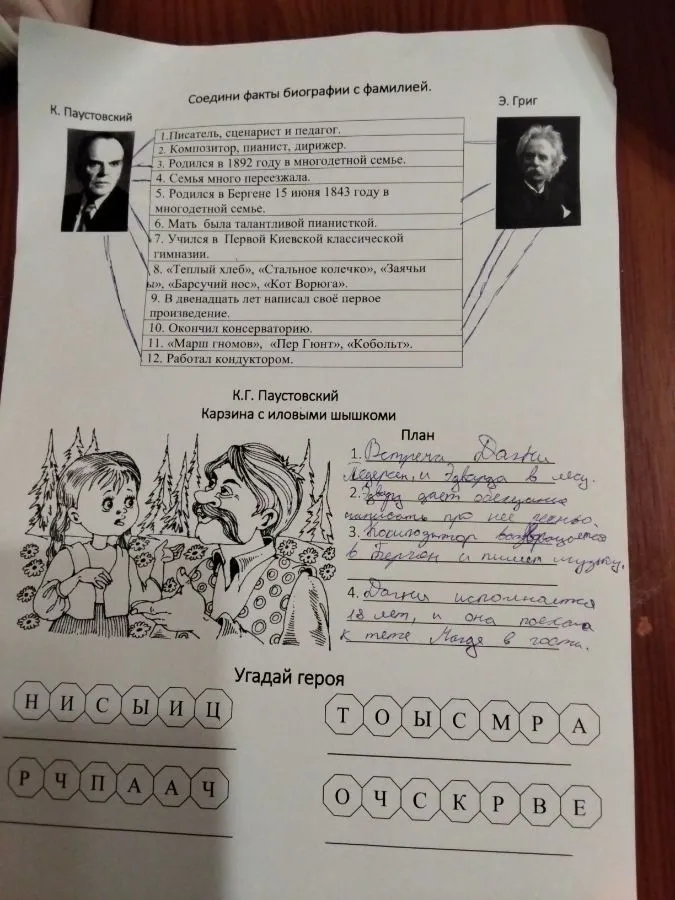 Соедини факты биографии с фамилией.
К. Паустовский
Э. Григ
1.Писатель, сценарист и педагог.
2. Композитор, пианист, дирижер.
3. Родился в 1892 году в многодетной семье.
4. Семья много переезжала.
5. Родился в Бергене 15 июня 1843 году в
многодетной семье.
6. Мать была талантливой пианисткой.
7. Учился в Первой Киевской классической
гимназии.
8. «Теплый хлеб», «Стальное колечко», «Заячьи
ы», «Барсучий нос», «Кот Ворюга».
9. В двенадцать лет написал своё первое
произведение.
10. Окончил консерваторию.
11. «Марш гномов», «Пер Гюнт», «Кобольт».
12. Работал кондуктором.
К.Г. Паустовский
Карзина с иловыми шышкоми
План
1. Встреча Дагни
и Эдварда в лесу.
2. дает обещание
написать про нее песню.
3. Композитор возвращается
в Берген и пишет музыку.
4. Дагни исполнается
18 лет, и она поехала
к тете Магде в гости.
Угадай героя
Н И С Ы И Ц
Т О Ы С М Р А
Р Ч П А А Ч
О Ч С К Р В Е